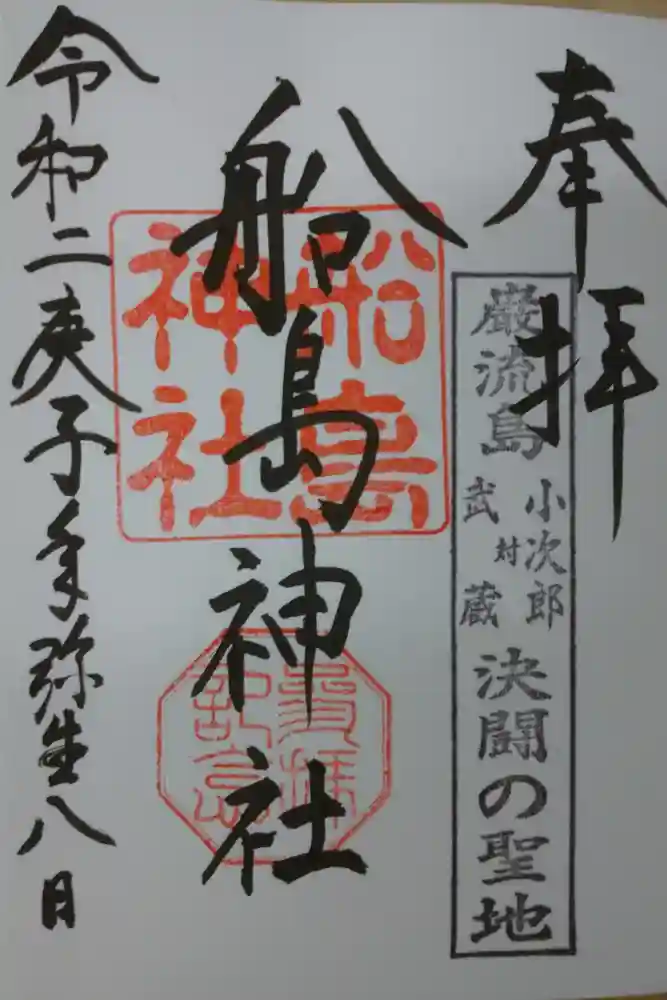 奉拝
巌流島
小次郎
対
武蔵
決闘の聖地
船島神社
船島
神社
参拝
記念
令和二庚子年弥生八日